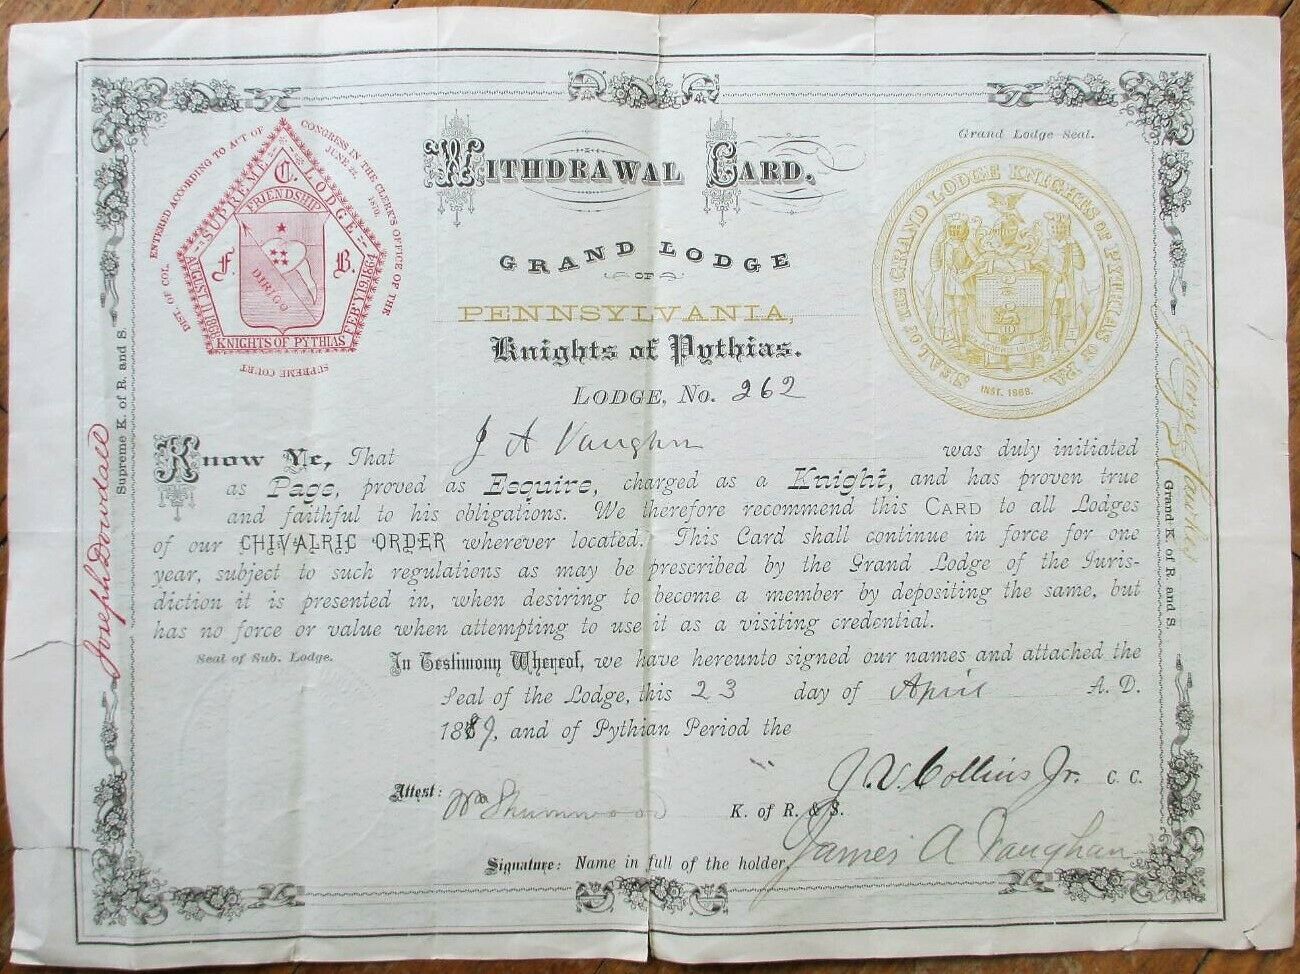 WITHDRAWAL CARD.
Grand Lodge Seal.
DIST. OF COL. ENTERED ACCORDING TO ACT OF CONGRESS IN THE CLERK'S OFFICE OF THE SUPREME COURT
JUNE 22, 1870.
SUPREME LODGE
C.
FRIENDSHIP
F.
B.
DIRIGO
AUGUST 11, 1868
FEB'Y 19, 1864
KNIGHTS OF PYTHIAS
SEAL OF THE GRAND LODGE KNIGHTS OF PYTHIAS OF PA.
INST. 1868.
GRAND LODGE
OF
PENNSYLVANIA,
Knights of Pythias.
LODGE, No. 262
KNOW YE, That J A Vaughn was duly initiated
as Page, proved as Esquire, charged as a Knight, and has proven true
and faithful to his obligations. We therefore recommend this CARD to all Lodges
of our CHIVALRIC ORDER wherever located. This Card shall continue in force for one
year, subject to such regulations as may be prescribed by the Grand Lodge of the Juris-
diction it is presented in, when desiring to become a member by depositing the same, but
has no force or value when attempting to use it as a visiting credential.
Seal of Sub. Lodge.
In Testimony Whereof, we have hereunto signed our names and attached the
Seal of the Lodge, this 23 day of April A. D.
1889, and of Pythian Period the
J. V. Collins Jr. C. C.
Attest: Wm Shumwood K. of R. & S.
Signature: Name in full of the holder, James A Vaughan
Joseph Dowdall
Supreme K. of R. and S.
George Hawkes
Grand K. of R. and S.